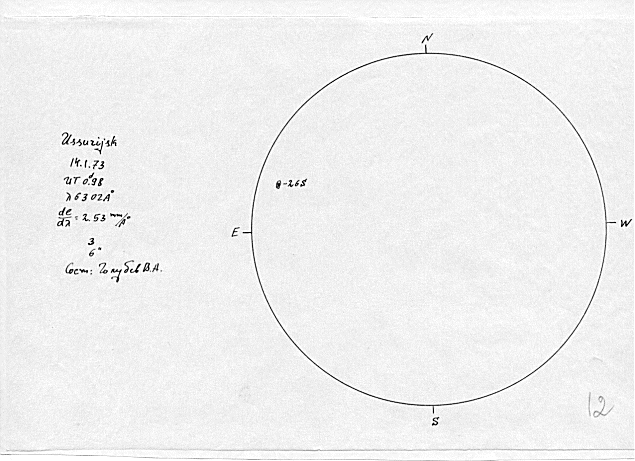 N
Ussurijsk
14.1.73
UT 0.ᵈ98
λ6302A°
dl/dλ = 2.53 mm/A°
3
6"
Сост: Голубев В.А.
E
W
S
12